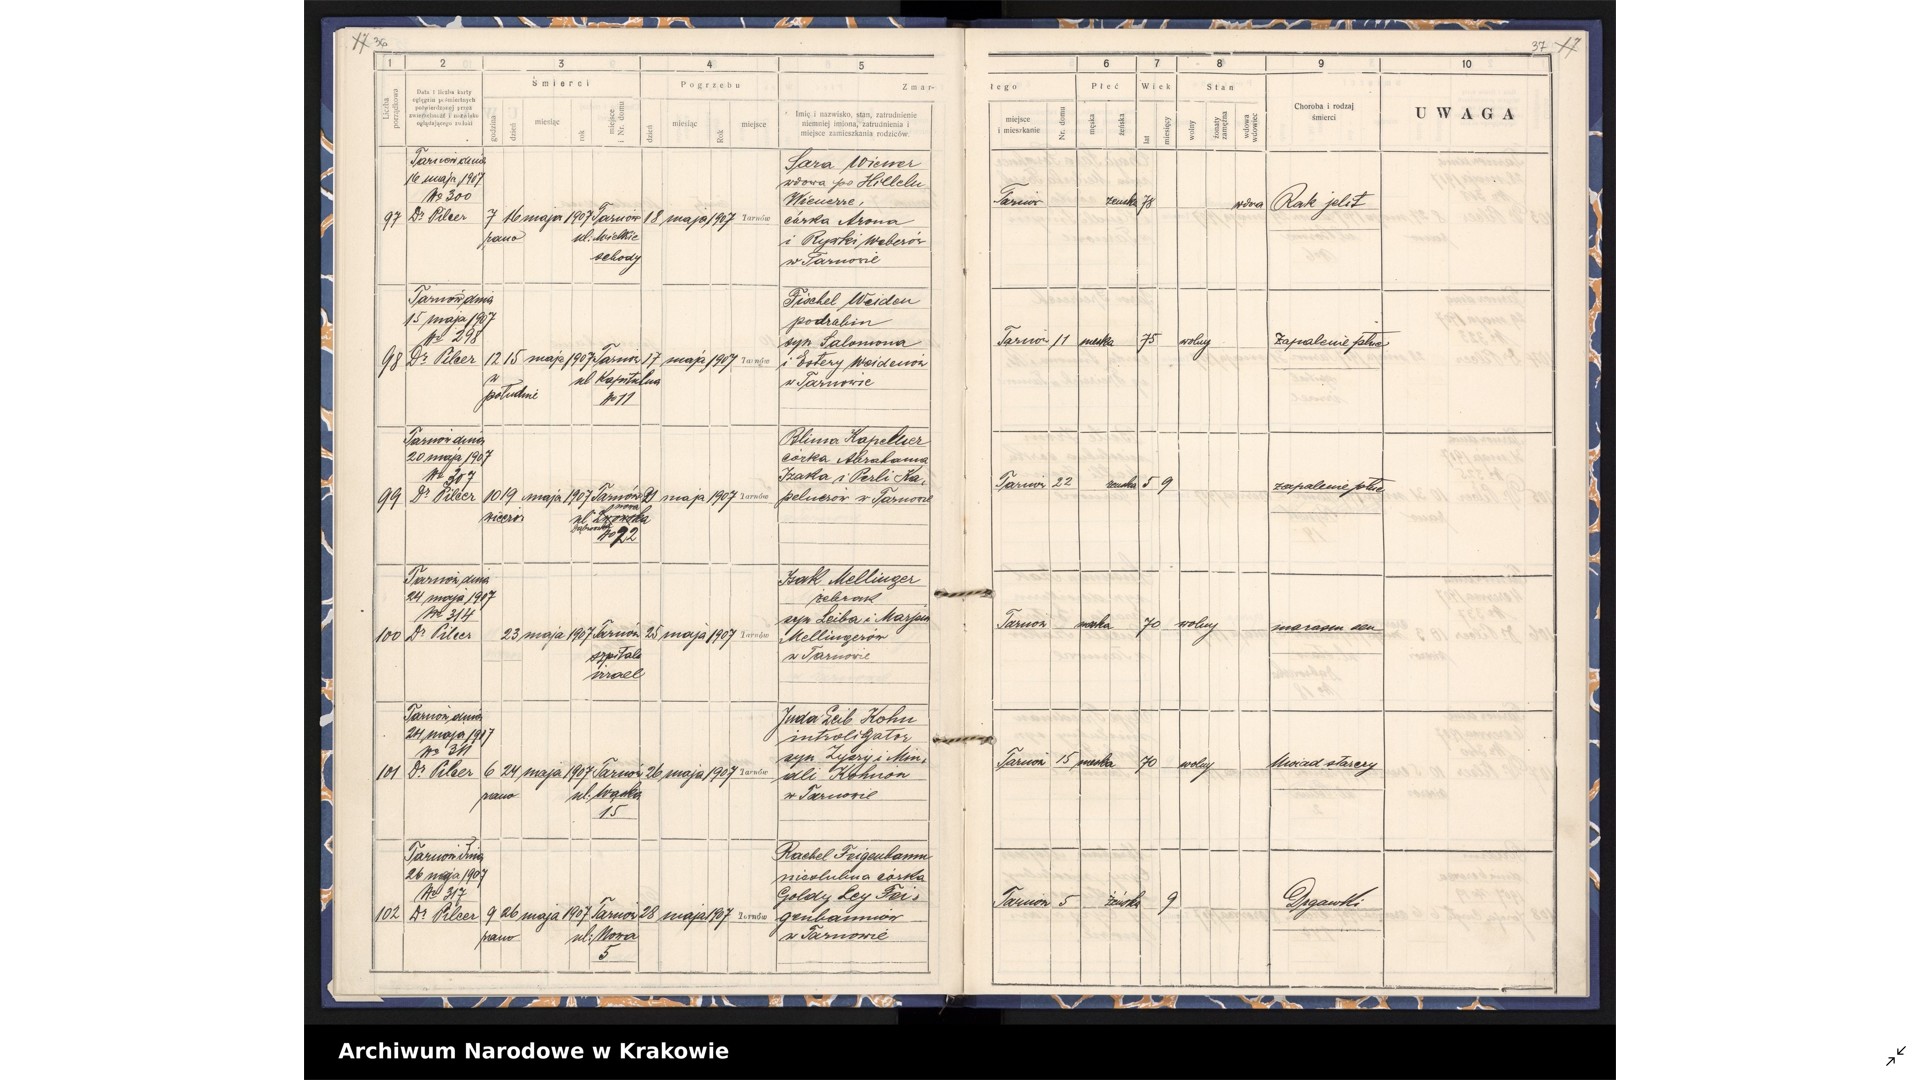 17 36
37 17
1 2 3 4 5
6 7 8 9 10
Śmierci Pogrzebu Zmar-
łego Płeć Wiek Stan
Liczba porządkowa
Data i liczba karty
oględzin pośmiertnych
godzina dzień miesiąc rok miejsce i Nr. domu
dzień miesiąc Rok miejsce
Imię i nazwisko, stan, zatrudnienie
niemniej imiona, zatrudnienia i
miejsce zamieszkania rodziców
miejsce i mieszkanie Nr. domu męska żeńska lat miesięcy wolny żonaty zamężna wdowa wdowiec
Choroba i rodzaj śmierci
UWAGA
Tarnów dnia
16 maja 1907
No 300
97 Dr Pilcer 7 16 maja 1907 Tarnów 18 maja 1907 Tarnów
rano ul. Wielkie
schody
Sara Wiener
wdowa po Hillelu
Wienerze,
córka Arona
i Ryfki Weberów
w Tarnowie
Tarnów żeńska 78 wdowa Rak jelit
Tarnów dnia
15 maja 1907
No 298
98 Dr Pilcer 12 15 maja 1907 Tarnów 17 maja 1907 Tarnów
w ul Kapitulna
południe No 11
Fischel Weiden
podrabin
syn Salomona
i Estery Weidenów
w Tarnowie
Tarnów 11 męska 75 wolny Zapalenie płuc
Tarnów dnia
20 maja 1907
No 307
99 Dr Pilcer 10 19 maja 1907 Tarnów 21 maja 1907 Tarnów
wieczór ul
No 22
Blima Kapellner
córka Abrahama
Izaka i Perli Ka-
pelnerów w Tarnowie
Tarnów 22 żeńska 5 9 zapalenie płuc
Tarnów dnia
24 maja 1907
No 314
100 Dr Pilcer 23 maja 1907 Tarnów 25 maja 1907 Tarnów
szpital
izrael
Izak Mellinger
żebrak
syn Leiba i Marjem
Mellingerów
w Tarnowie
Tarnów męska 70 wolny marasm sen
Tarnów dnia
24 maja 1907
No 311
101 Dr Pilcer 6 24 maja 1907 Tarnów 26 maja 1907 Tarnów
rano ul. Wąska
15
Juda Leib Kohn
introligator
syn i Min-
dli Kohnów
w Tarnowie
Tarnów 15 męska 70 wolny Uwiąd starczy
Tarnów dnia
26 maja 1907
No 317
102 Dr Pilcer 9 26 maja 1907 Tarnów 28 maja 1907 Tarnów
rano ul. Nowa
5
Rachel Feigenbaum
nieślubna córka
Goldy Ley Fei-
genbaumów
w Tarnowie
Tarnów 5 żeńska 9 Drgawki
Archiwum Narodowe w Krakowie